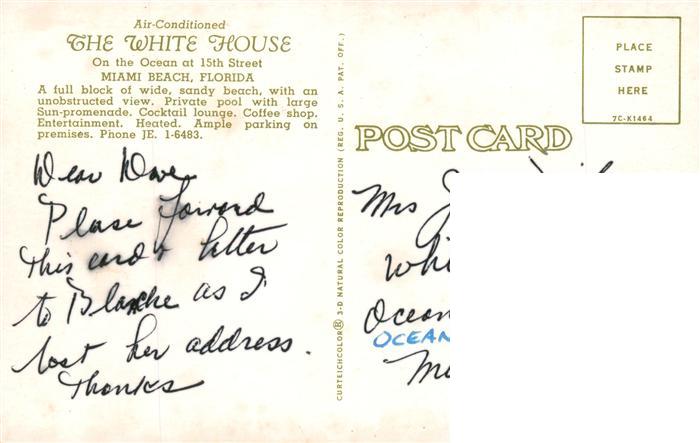 Air-Conditioned
THE WHITE HOUSE
On the Ocean at 15th Street
MIAMI BEACH, FLORIDA
A full block of wide, sandy beach, with an
unobstructed view. Private pool with large
Sun-promenade. Cocktail lounge. Coffee shop.
Entertainment. Heated. Ample parking on
premises. Phone JE. 1-6483.
Dear Dave
Please forward
this card & letter
to Blanche as I
lost her address.
Thanks
CURTEICHCOLOR® 3-D NATURAL COLOR REPRODUCTION (REG. U. S. A. PAT. OFF.)
POST CARD
PLACE
STAMP
HERE
7C-K1464
Mrs
Whi
Ocean
OCEAN